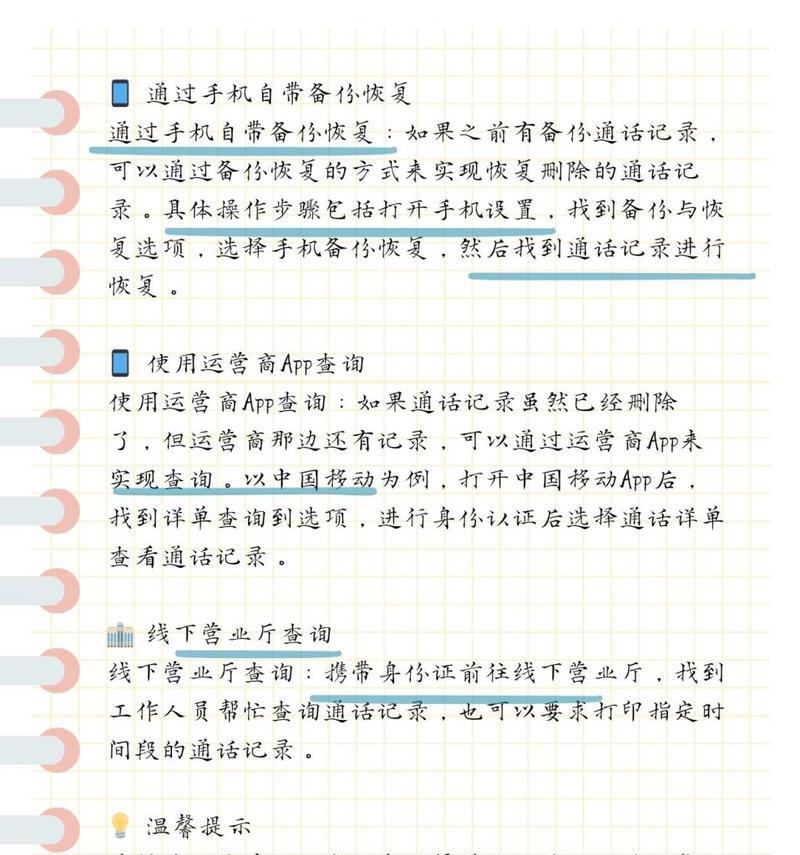 通过手机自带备份恢复
通过手机自带备份恢复：如果之前有备份通话记录，
可以通过备份恢复的方式来实现恢复删除的通话记
录。具体操作步骤包括打开手机设置，找到备份与恢
复选项，选择手机备份恢复，然后找到通话记录进行
恢复。
使用运营商App查询
使用运营商App查询：如果通话记录虽然已经删除
了，但运营商那边还有记录，可以通过运营商App来
实现查询。以中国移动为例，打开中国移动App后，
找到详单查询到选项，进行身份认证后选择通话详单
查看通话记录。
线下营业厅查询
线下营业厅查询：携带身份证前往线下营业厅，找到
工作人员帮忙查询通话记录，也可以要求打印指定时
间段的通话记录。
温馨提示